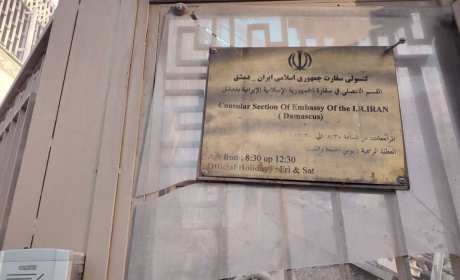 کنسولی سفارت جمهوری اسلامی ایران _ دمشق
القسم القنصلي في سفارة الجمهورية الإسلامية الإيرانية بدمشق
Consular Section Of Embassy Of the I.R.IRAN
( Damascus )
المراجعات: من الساعة ٨/٣٠ الى ١٢/٣٠
العطلة الرسمية : يومي الجمعة والسبت
from : 8:30 up 12:30
Official Holiday : Fri & Sat